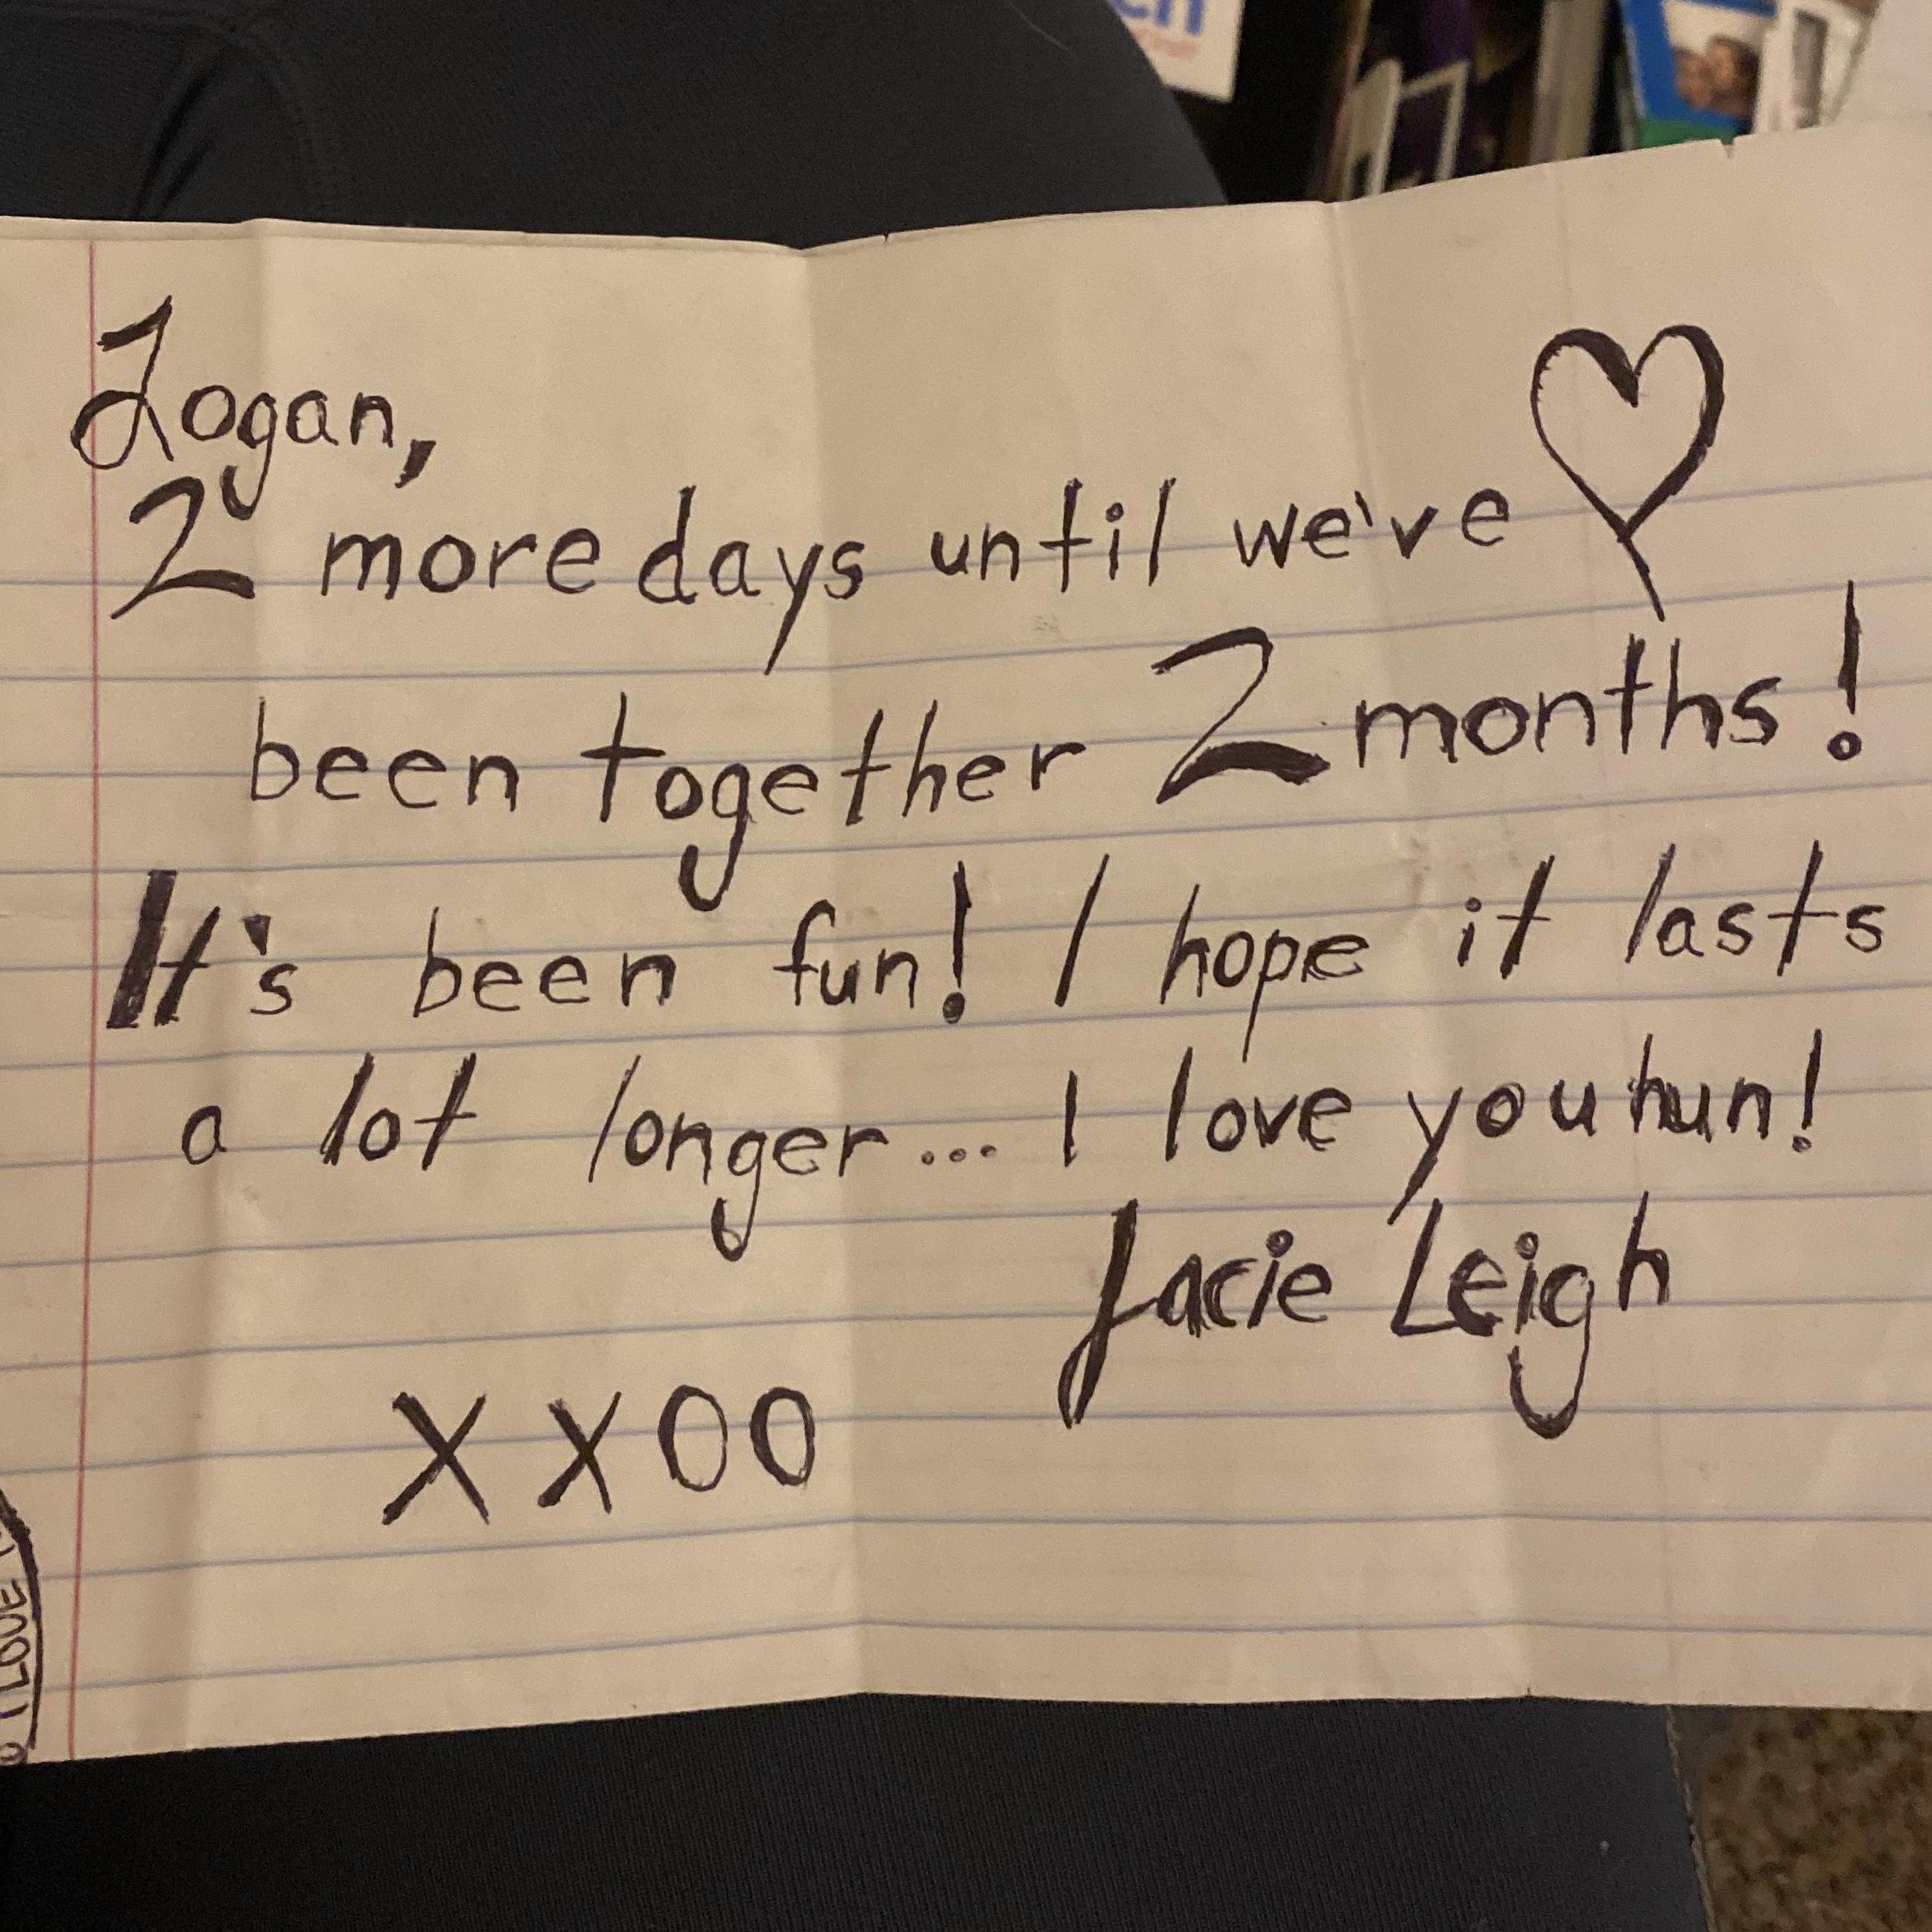 Logan,
2 more days until we've
been together 2 months!
It's been fun! I hope it lasts
a lot longer... I love you hun!
Jacie Leigh
XXOO
I LOVE